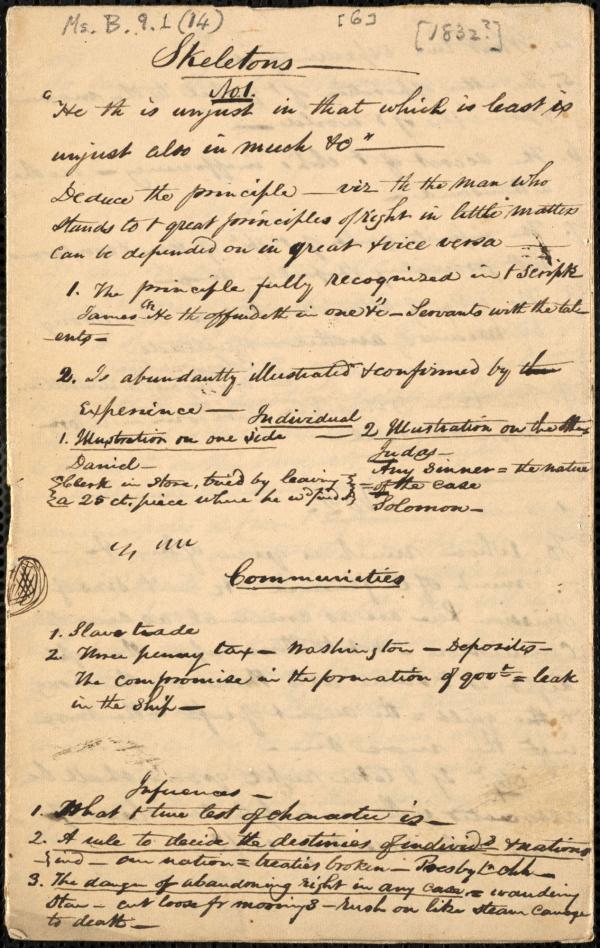 Ms. B. 9.1 (14) [6] [1832?]
Skeletons—
No 1.
"He th is unjust in that which is least is
unjust also in much &c"—
Deduce the principle — viz th the man who
stands to t great principles of right in little matters
can be depended on in great & vice versa —
1. The principle fully recognized in t Script
James "He th offendeth in one &c"— Servants with the tal-
ents—
2. Is abundantly illustrated & confirmed by
Experience — Individual
1. Illustration on one side
Daniel—
Clerk in Store, tried by leaving
a 25 ct. piece where he wd find it
2 Illustration on the other
Judas—
Any Sinner = the nature
= of the case
Solomon—
Communities
1. Slave trade
2. Three penny tax — Washington — Deposites—
The compromise in the formation of govt = leak
in the Ship—
Inferences—
1. What t true test of character is—
2. A rule to decide the destinies of individs & nations
ind — our nation = treaties broken — Presby Chh—
3. The danger of abandoning right in any case = wandering
Star — cut loose fr moorings — Rush on like steam Carriage
to death—